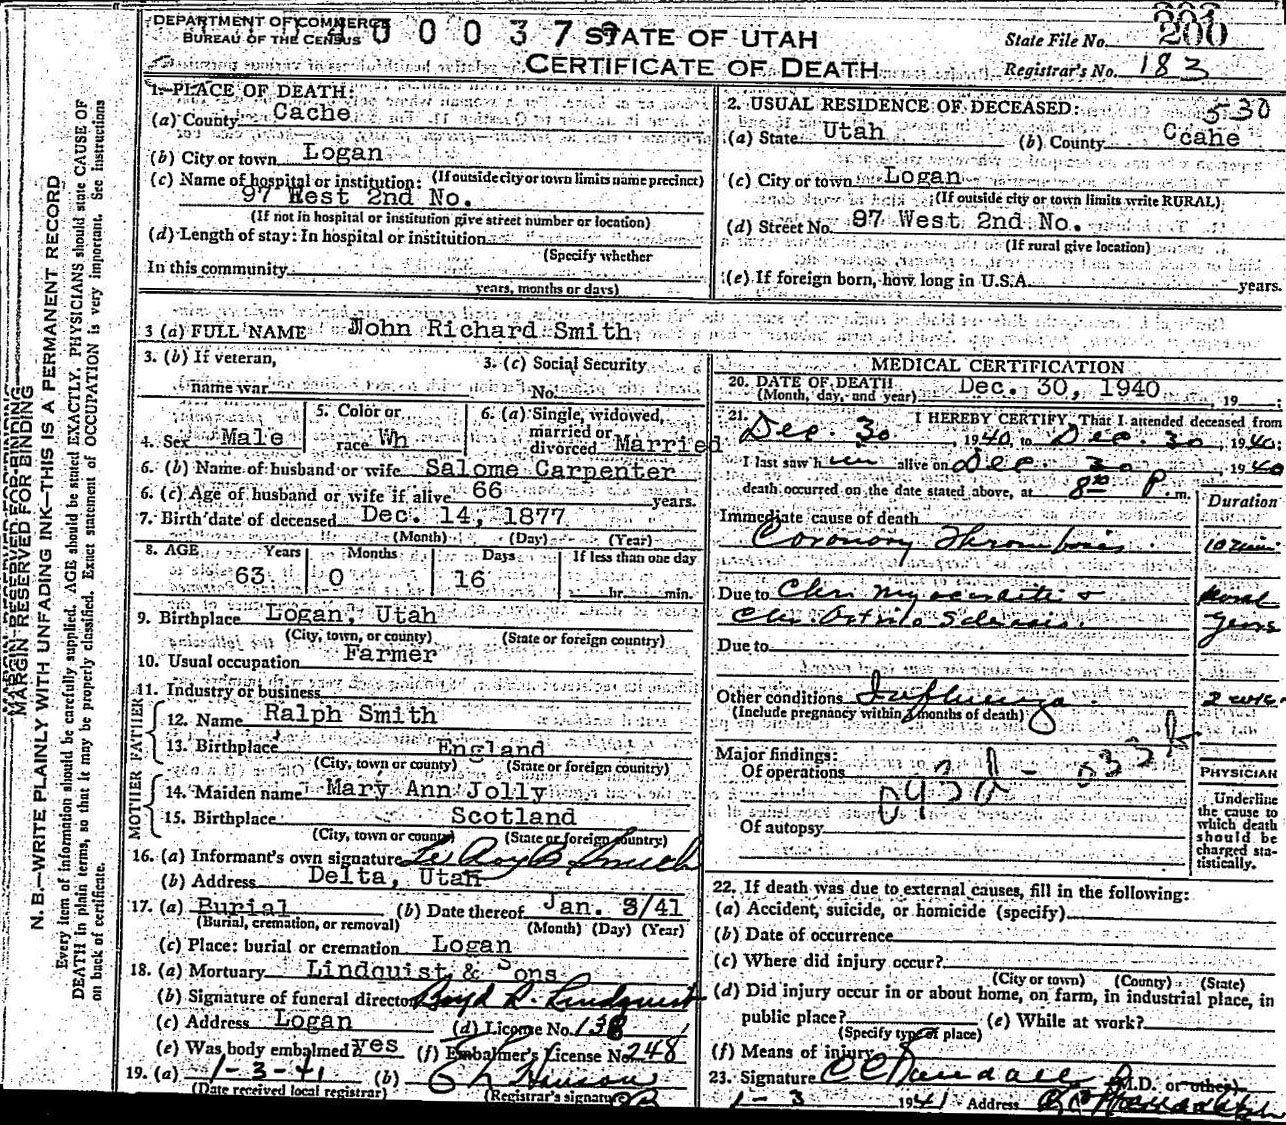 DEPARTMENT OF COMMERCE
BUREAU OF THE CENSUS
400037
STATE OF UTAH
CERTIFICATE OF DEATH
State File No. 200
Registrar's No. 183
MARGIN RESERVED FOR BINDING
N. B.—WRITE PLAINLY WITH UNFADING INK—THIS IS A PERMANENT RECORD
Every item of information should be carefully supplied. AGE should be stated EXACTLY. PHYSICIANS should state CAUSE OF
DEATH in plain terms, so that it may be properly classified. Exact statement of OCCUPATION is very important. See instructions
on back of certificate.
1.—PLACE OF DEATH:
(a) County Cache
(b) City or town Logan
(If outside city or town limits name precinct)
(c) Name of hospital or institution:
97 West 2nd No.
(If not in hospital or institution give street number or location)
(d) Length of stay: In hospital or institution
(Specify whether
In this community
years, months or days)
2. USUAL RESIDENCE OF DECEASED: 530
(a) State Utah (b) County Ccahe
(c) City or town Logan
(If outside city or town limits write RURAL)
(d) Street No. 97 West 2nd No.
(If rural give location)
(e) If foreign born, how long in U.S.A. years.
3 (a) FULL NAME John Richard Smith
3. (b) If veteran,
name war
3. (c) Social Security
No.
4. Sex Male
5. Color or
race Wh
6. (a) Single, widowed,
married or
divorced Married
6. (b) Name of husband or wife Salome Carpenter
6. (c) Age of husband or wife if alive 66 years.
7. Birth date of deceased Dec. 14, 1877
(Month) (Day) (Year)
8. AGE Years Months Days If less than one day
63 0 16 hr. min.
9. Birthplace Logan, Utah
(City, town, or county) (State or foreign country)
10. Usual occupation Farmer
11. Industry or business
FATHER
12. Name Ralph Smith
13. Birthplace England
(City, town or county) (State or foreign country)
MOTHER
14. Maiden name Mary Ann Jolly
15. Birthplace Scotland
(City, town or county) (State or foreign country)
16. (a) Informant's own signature Le Roy B Smith
(b) Address Delta, Utah
17. (a) Burial (b) Date thereof Jan. 3/41
(Burial, cremation, or removal) (Month) (Day) (Year)
(c) Place: burial or cremation Logan
18. (a) Mortuary Lindquist & Sons
(b) Signature of funeral director Boyd R. Lindquist
(c) Address Logan (d) License No. 138
(e) Was body embalmed? yes (f) Embalmer's License No. 248
19. (a) 1-3-41 (b)
(Date received local registrar) (Registrar's signature)
MEDICAL CERTIFICATION
20. DATE OF DEATH Dec. 30, 1940, 19
(Month, day, and year)
21. I HEREBY CERTIFY, That I attended deceased from
Dec. 30, 1940, to Dec. 30, 1940:
I last saw him alive on Dec. 30, 1940
death occurred on the date stated above, at 8 P. m.
Duration
Immediate cause of death
Coronory Thrombosis 10 min
Due to Chr. Myocarditis &
Chr. Arterio Sclerosis. years
Due to
Other conditions Influenza 2 wks
(Include pregnancy within 3 months of death)
Major findings:
Of operations
Of autopsy
PHYSICIAN
Underline
the cause to
which death
should be
charged sta-
tistically.
22. If death was due to external causes, fill in the following:
(a) Accident, suicide, or homicide (specify)
(b) Date of occurrence
(c) Where did injury occur?
(City or town) (County) (State)
(d) Did injury occur in or about home, on farm, in industrial place, in
public place? (e) While at work?
(Specify type of place)
(f) Means of injury
23. Signature (M.D. or other)
1-3 1941 Address